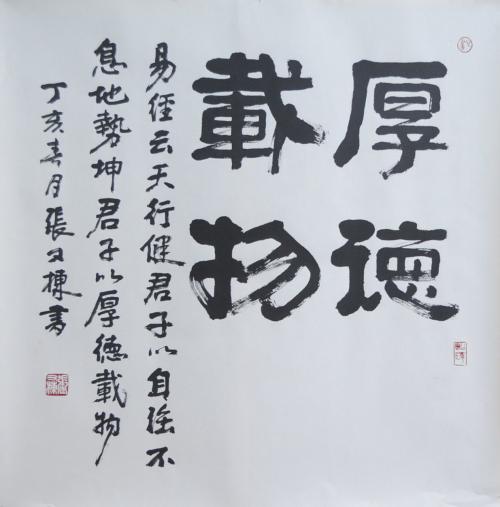 厚德
載物
易經云天行健君子以自強不
息地勢坤君子以厚德載物
丁亥春月張文棟書